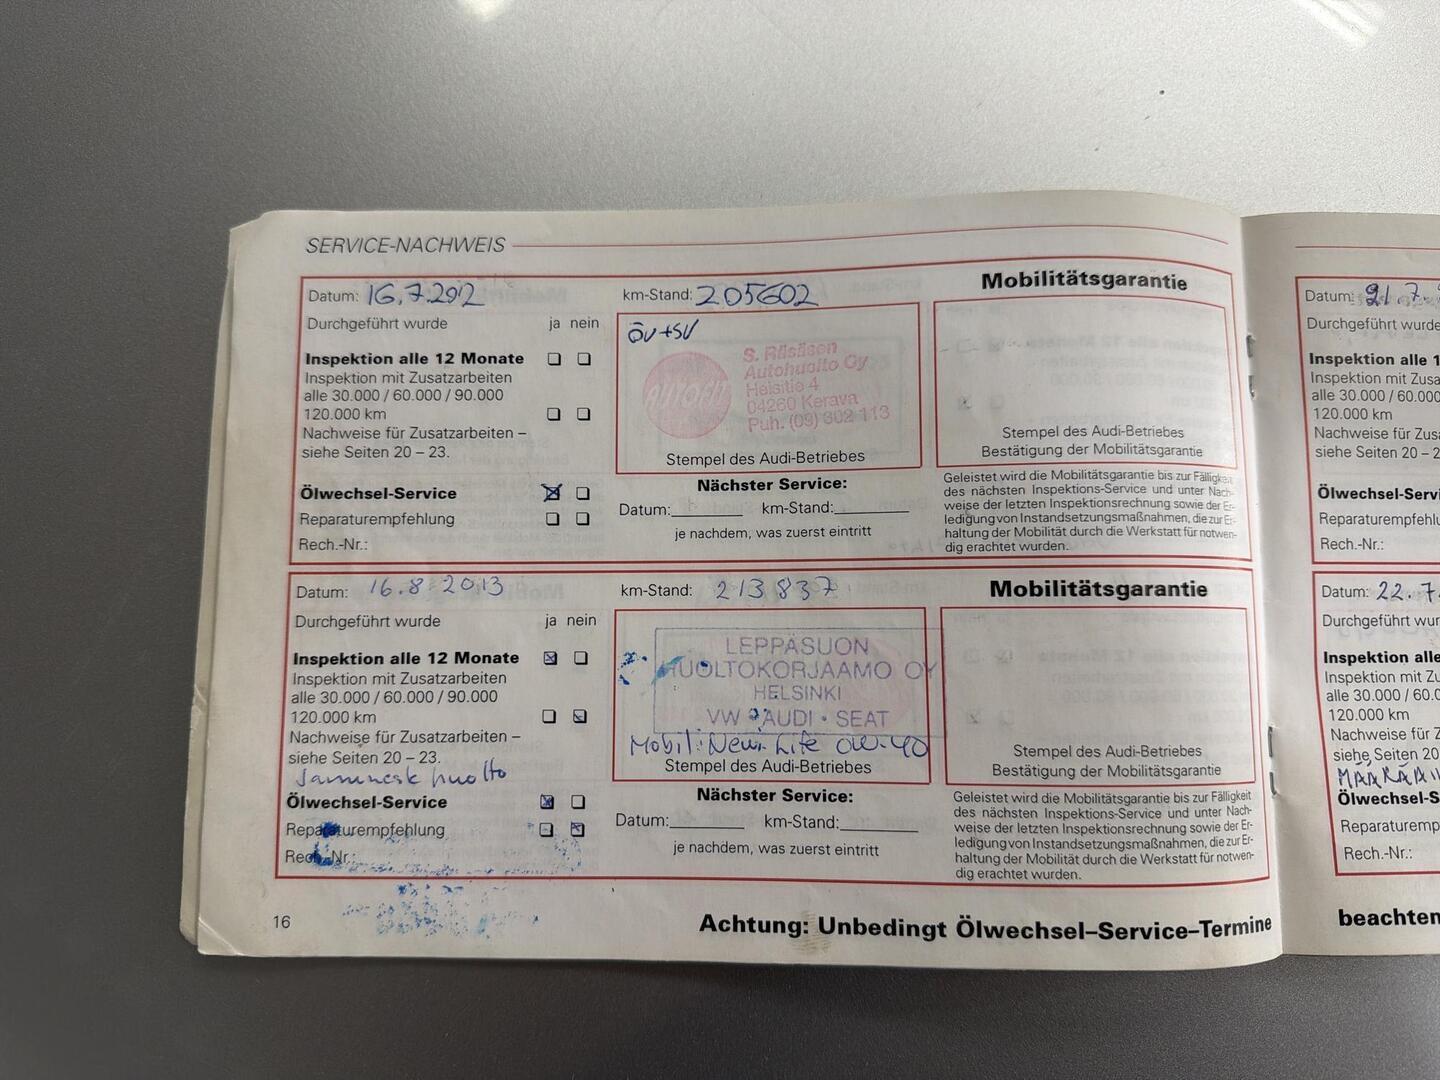 SERVICE-NACHWEIS
Datum: 16.7.2012
km-Stand: 205602
Mobilitätsgarantie
Durchgeführt wurde ja nein
Inspektion alle 12 Monate
Inspektion mit Zusatzarbeiten
alle 30.000 / 60.000 / 90.000
120.000 km
Nachweise für Zusatzarbeiten –
siehe Seiten 20 – 23.
Ölwechsel-Service
Reparaturempfehlung
Rech.-Nr.:
ÖV+SV
AUTOFIT
S. Räsäsen
Autohuolto Oy
Helsitie 4
04260 Kerava
Puh. (09) 302 113
Stempel des Audi-Betriebes
Nächster Service:
Datum: km-Stand:
je nachdem, was zuerst eintritt
Stempel des Audi-Betriebes
Bestätigung der Mobilitätsgarantie
Geleistet wird die Mobilitätsgarantie bis zur Fälligkeit
des nächsten Inspektions-Service und unter Nach-
weise der letzten Inspektionsrechnung sowie der Er-
ledigung von Instandsetzungsmaßnahmen, die zur Er-
haltung der Mobilität durch die Werkstatt für notwen-
dig erachtet wurden.
Datum: 16.8.2013
km-Stand: 213837
Mobilitätsgarantie
Durchgeführt wurde ja nein
Inspektion alle 12 Monate
Inspektion mit Zusatzarbeiten
alle 30.000 / 60.000 / 90.000
120.000 km
Nachweise für Zusatzarbeiten –
siehe Seiten 20 – 23.
huolto
Ölwechsel-Service
Reparaturempfehlung
Rech.-Nr.:
LEPPÄSUON
HUOLTOKORJAAMO OY
HELSINKI
VW • AUDI • SEAT
Mobil: New Life 0W-40
Stempel des Audi-Betriebes
Nächster Service:
Datum: km-Stand:
je nachdem, was zuerst eintritt
Stempel des Audi-Betriebes
Bestätigung der Mobilitätsgarantie
Geleistet wird die Mobilitätsgarantie bis zur Fälligkeit
des nächsten Inspektions-Service und unter Nach-
weise der letzten Inspektionsrechnung sowie der Er-
ledigung von Instandsetzungsmaßnahmen, die zur Er-
haltung der Mobilität durch die Werkstatt für notwen-
dig erachtet wurden.
16
Achtung: Unbedingt Ölwechsel–Service–Termine
Datum: 21.7.
Durchgeführt wurde
Inspektion alle 1
Inspektion mit Zusa
alle 30.000 / 60.000
120.000 km
Nachweise für Zusa
siehe Seiten 20 – 2
Ölwechsel-Servi
Reparaturempfehlu
Rech.-Nr.:
Datum: 22.7.
Durchgeführt wur
Inspektion alle
Inspektion mit Zu
alle 30.000 / 60.0
120.000 km
Nachweise für Z
siehe Seiten 20
Ölwechsel-S
Reparaturemp
Rech.-Nr.:
beachten